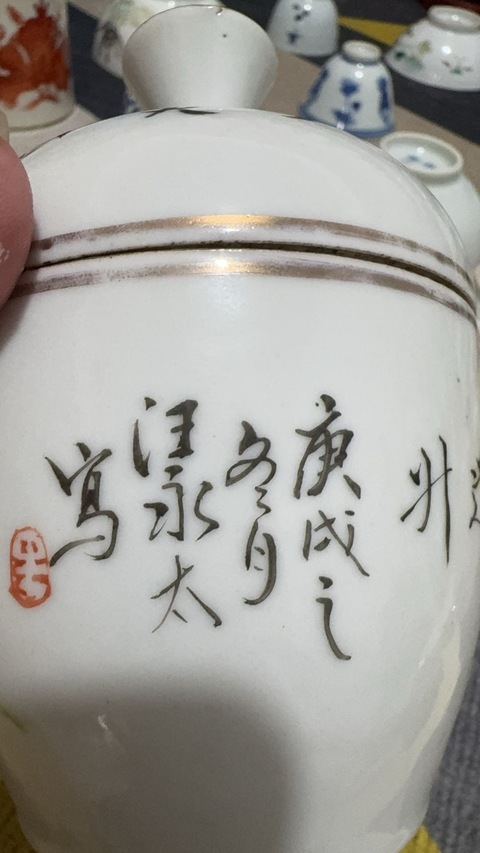 升
庚戌之
冬月
汪永太
寫